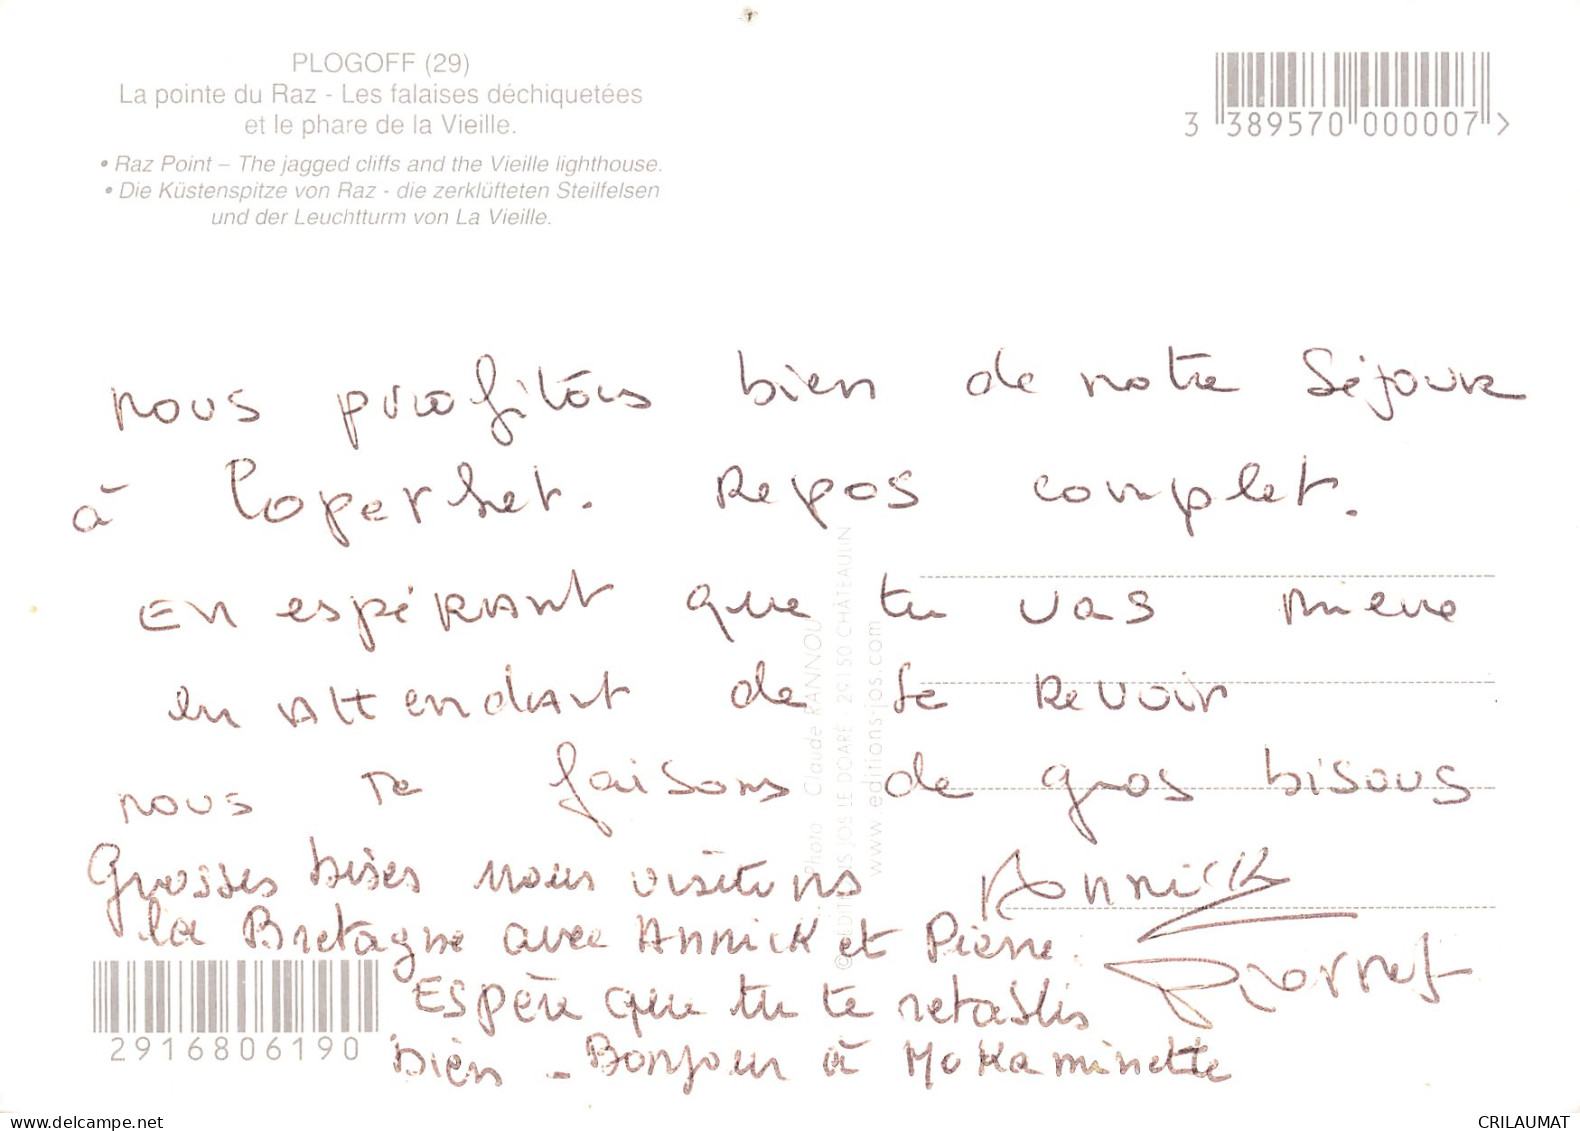 PLOGOFF (29)
La pointe du Raz - Les falaises déchiquetées
et le phare de la Vieille.
• Raz Point – The jagged cliffs and the Vieille lighthouse.
• Die Küstenspitze von Raz - die zerklüfteten Steilfelsen
und der Leuchtturm von La Vieille.
3 389570 000007 >
nous profitons bien de notre séjour
à Loperhet. Repos complet.
En espérant que tu vas mieux
en attendant de te revoir
nous te faisons de gros bisous
Annick
Grosses bises nous visitons
la Bretagne avec Annick et Pierre.
Espère que tu te rétablis
bien - Bonjour à Moka minette
Photo Claude RANNOU
© EDITIONS JOS LE DOARÉ - 29150 CHÂTEAULIN
www.editions-jos.com
2916806190
CRILAUMAT
delcampe.net